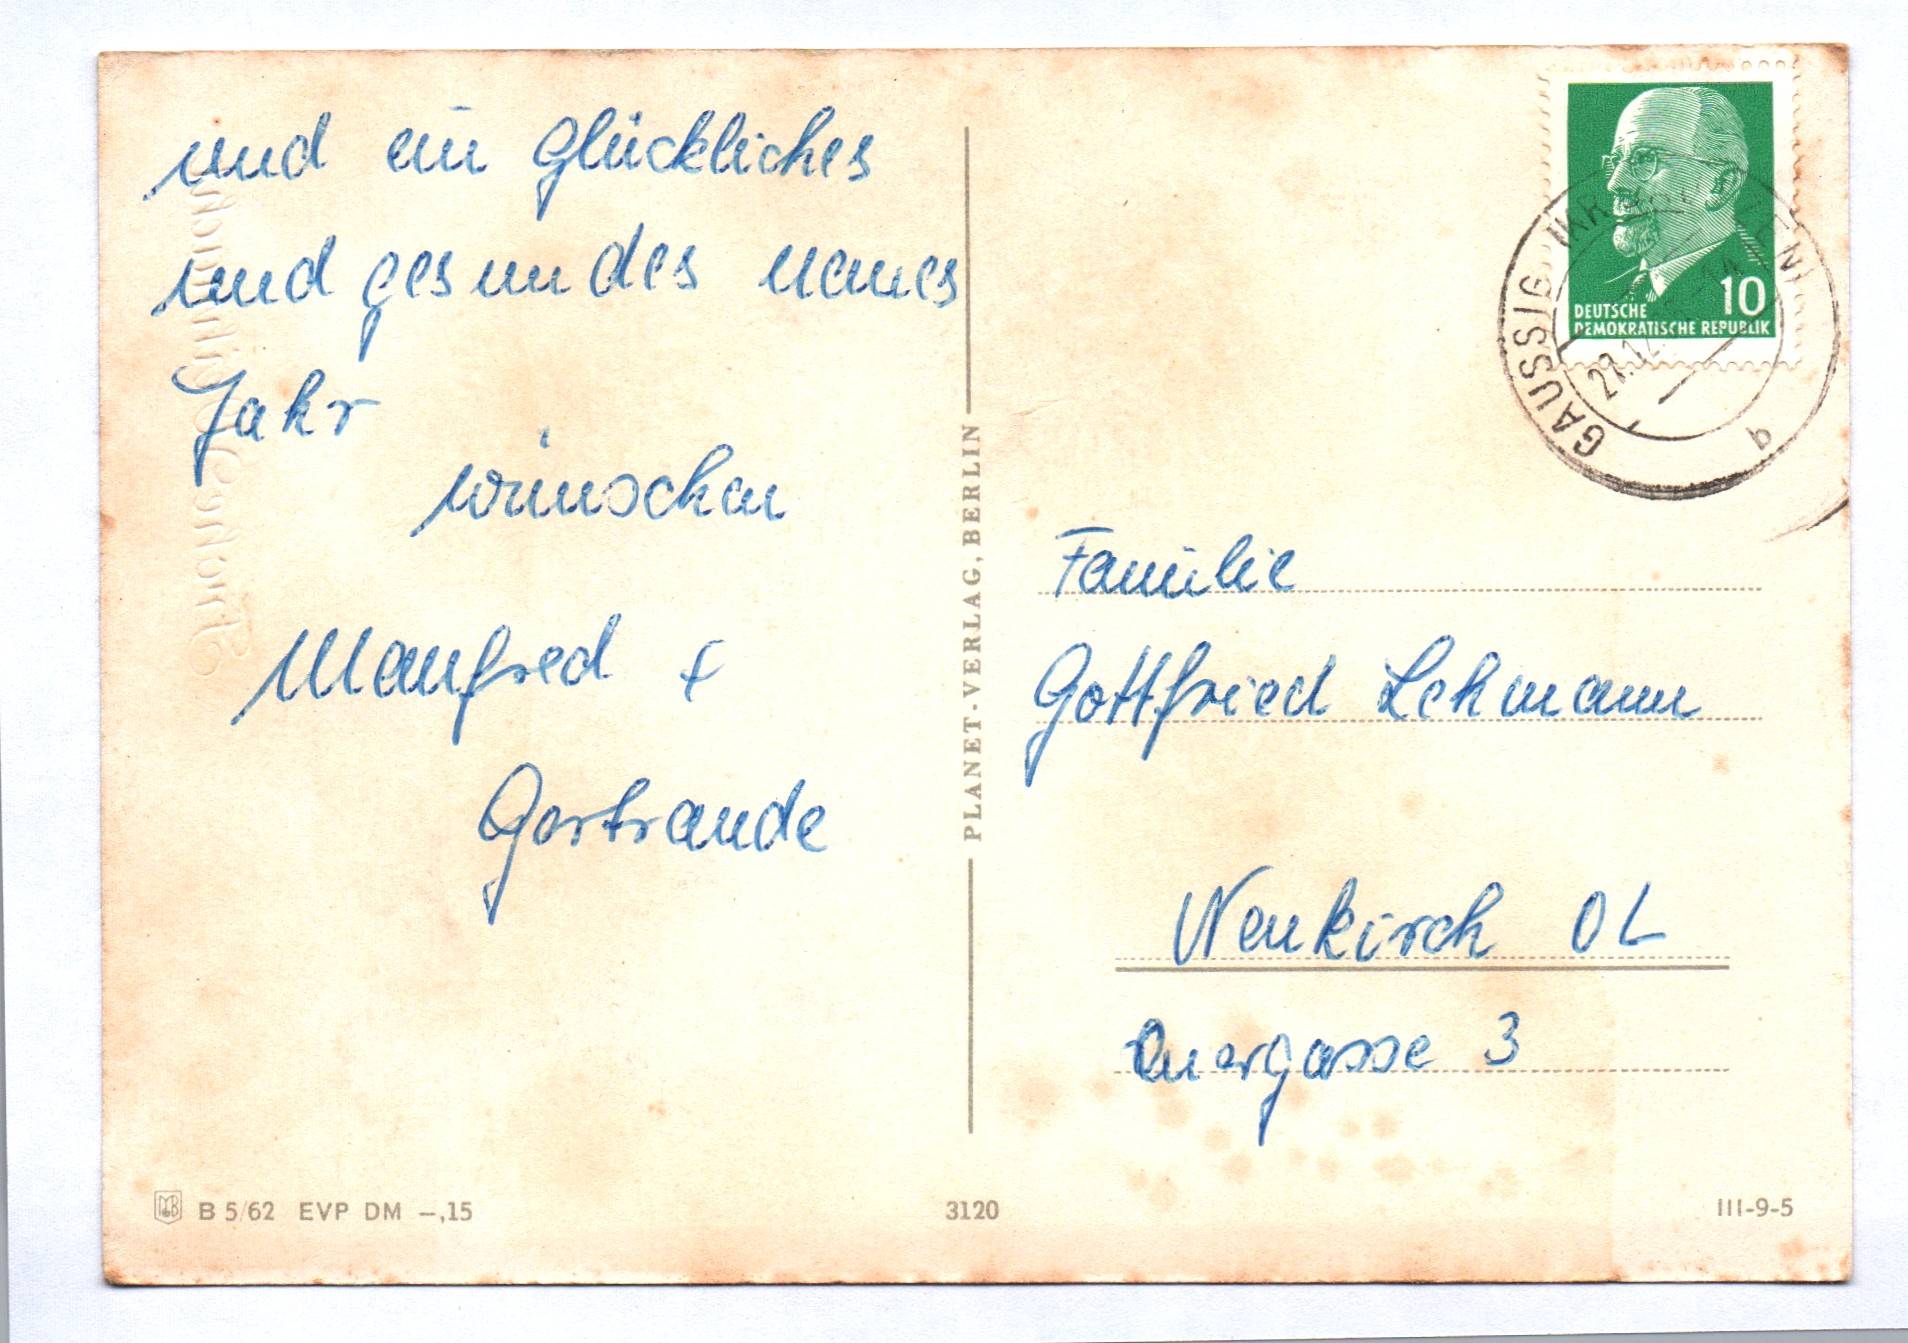 und ein glückliches
und gesundes neues
Jahr
wünschen
Manfred +
Gertraude
PLANET-VERLAG, BERLIN
10
DEUTSCHE
DEMOKRATISCHE REPUBLIK
GAUSSIG (KR BAUTZEN)
b
Familie
Gottfried Lehmann
Neukirch OL
Quergasse 3
B 5/62 EVP DM –,15
3120
III-9-5